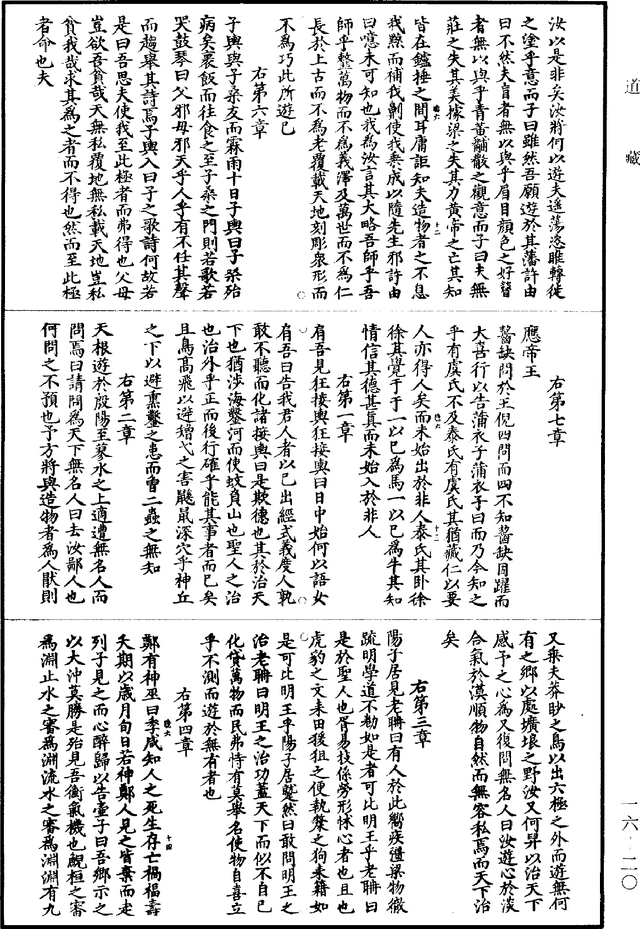 道藏
汝以是非矣汝將何以遊夫遙蕩恣睢轉徙
之塗乎意而子曰雖然吾願遊於其藩許由
曰不然夫盲者無以與乎眉目顏色之好瞽
者無以與乎青黃黼黻之觀意而子曰夫無
莊之失其美據梁之失其力黃帝之亡其知
皆在鑪捶之間耳庸詎知夫造物者之不息
我黥而補我劓使我乘成以隨先生邪許由
曰噫未可知也我為汝言其大略吾師乎吾
師乎𩐋萬物而不為義澤及萬世而不為仁
長於上古而不為老覆載天地刻彫衆形而
不為巧此所遊已
右第六章
子輿與子桑友而霖雨十日子輿曰子桑殆
病矣裹飯而往食之至子桑之門則若歌若
哭鼓琴曰父邪母邪天乎人乎有不任其聲
而趨舉其詩焉子輿入曰子之歌詩何故若
是曰吾思夫使我至此極者而弗得也父母
豈欲吾貧哉天無私覆地無私載天地豈私
貧我哉求其為之者而不得也然而至此極
者命也夫
右第七章
應帝王
齧缺問於王倪四問而四不知齧缺因躍而
大喜行以告蒲衣子蒲衣子曰而乃今知之
乎有虞氏不及泰氏有虞氏其猶藏仁以要
人亦得人矣而未始出於非人泰氏其卧徐
徐其覺于于一以已為馬一以已為牛其知
情信其德甚真而未始入於非人
右第一章
肩吾見狂接輿狂接輿曰日中始何以語女
肩吾曰告我君人者以已出經式義度人孰
敢不聽而化諸接輿曰是欺德也其於治天
下也猶涉海鑿河而使蚊負山也聖人之治
也治外乎正而後行確乎能其事者而已矣
且鳥高飛以避矰弋之害鼷鼠深穴乎神丘
之下以避熏鑿之患而曾二蟲之無知
右第二章
天根遊於殷陽至蓼水之上適遭無名人而
問焉曰請問為天下無名人曰去汝鄙人也
何問之不預也予方將與造物者為人猒則
又乘夫莽眇之鳥以出六極之外而遊無何
有之鄉以處壙垠之野汝又何帠以治天下
感予之心為又復問無名人曰汝遊心於淡
合氣於漠順物自然而無容私焉而天下治
矣
右第三章
陽子居見老聃曰有人於此嚮疾彊梁物徹
疏明學道不勌如是者可比明王乎老聃曰
是於聖人也胥易技係勞形怵心者也且也
虎豹之文來田猨狙之便執斄之狗來籍如
是可比明王乎陽子居蹵然曰敢問明王之
治老聃曰明王之治功蓋天下而似不自已
化貸萬物而民弗恃有莫舉名使物自喜立
乎不測而遊於無有者也
右第四章
鄭有神巫曰季咸知人之死生存亡禍福壽
夭期以歲月旬日若神鄭人見之皆棄而走
列子見之而心醉歸以告壺子曰吾鄉示之
以大沖莫勝是殆見吾衡氣機也鯢桓之審
為淵止水之審為淵流水之審為淵淵有九
一六-二〇